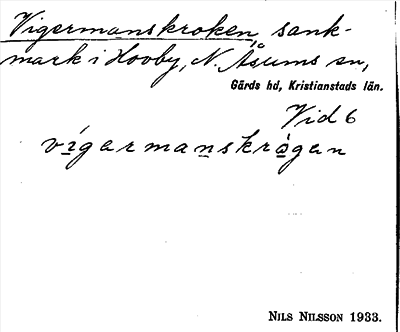 Vigermanskroken, sank-
mark i Hovby, N. Åsums sn,
Gärds hd, Kristianstads län.
Vid 6
vígarmanskrògan
NILS NILSSON 1933.